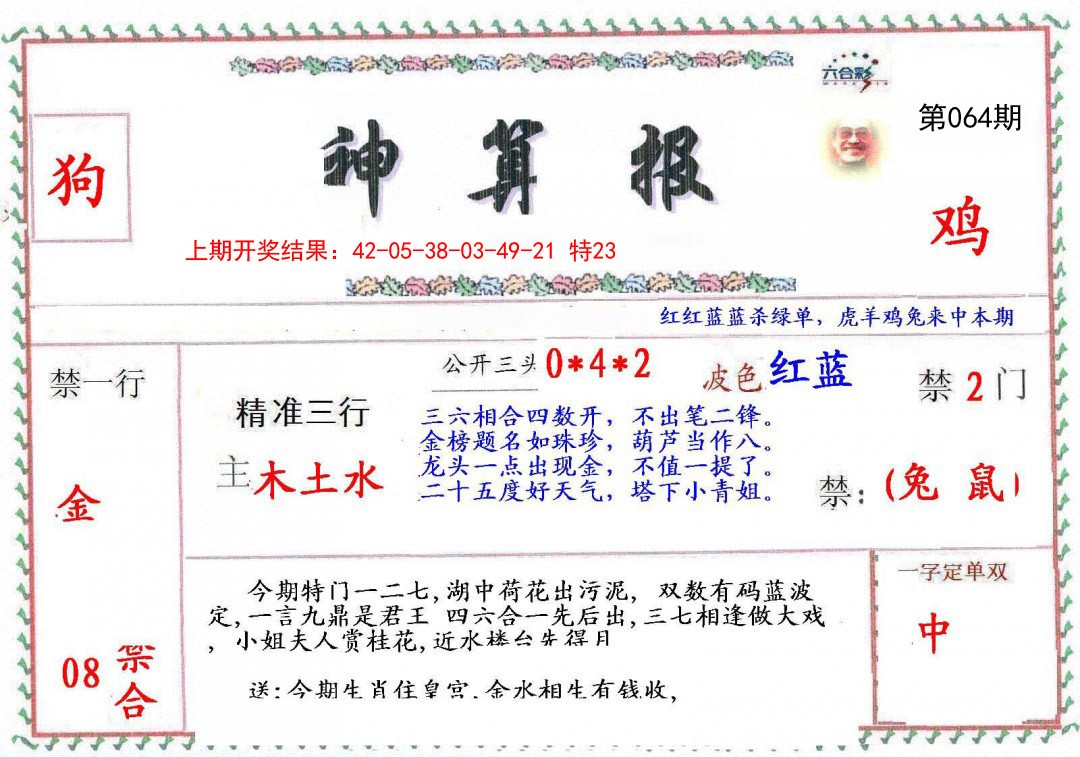 六合彩
第064期
狗
神算报
鸡
上期开奖结果：42-05-38-03-49-21 特23
红红蓝蓝杀绿单，虎羊鸡兔来中本期
禁一行
金
08 禁合
精准三行
主 木土水
公开三头 0*4*2
波色 红蓝
三六相合四数开，不出笔二锋。
金榜题名如珠珍，葫芦当作八。
龙头一点出现金，不值一提了。
二十五度好天气，塔下小青姐。
禁 2 门
禁：(兔 鼠)
今期特门一二七,湖中荷花出污泥, 双数有码蓝波
定,一言九鼎是君王 四六合一先后出,三七相逢做大戏
, 小姐夫人赏桂花,近水楼台先得月
送:今期生肖住皇宫.金水相生有钱收,
一字定单双
中